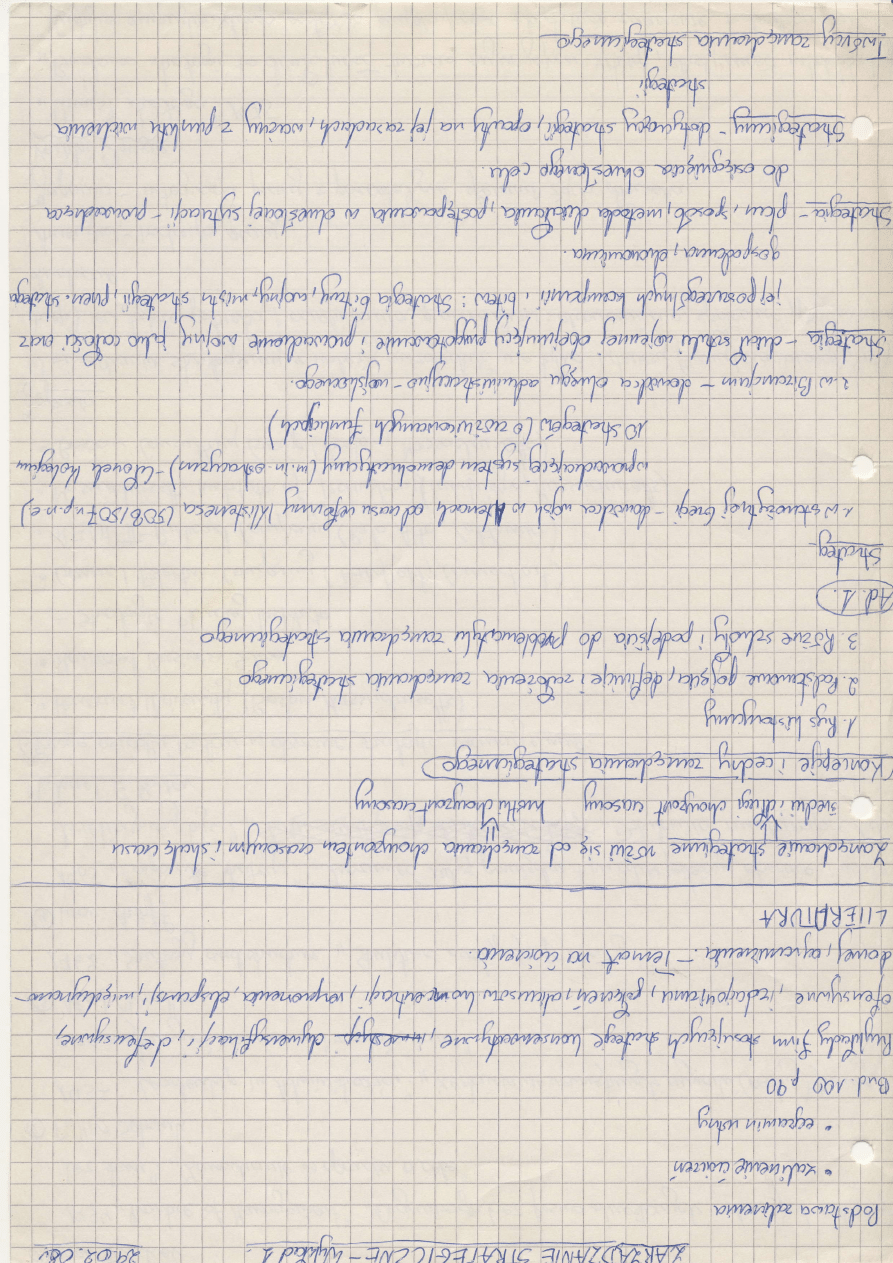 ZARZĄDZANIE STRATEGICZNE - Wykład 1 29.02.08r.
Podstawa zaliczenia
• zaliczenie ćwiczeń
• egzamin ustny
Bud. 100 p. 90
Przykłady firm stosujących strategie konserwatywne, dywersyfikacji, defensywne,
ofensywne, aliansów koncentracji, ekspansji, międzynaro-
dowej, ograniczenia. - Temat na ćwiczenia.
LITERATURA
Zarządzanie strategiczne różni się od zarządzania choryzontem czasowym i skalą czasu
średni i długi choryzont czasowy krótki choryzont czasowy
Koncepcje i cechy zarządzania strategicznego
1. Rys historyczny
2. Podstawowe pojęcia, definicje i założenia zarządzania strategicznego
3. Różne szkoły i podejścia do problematyki zarządzania strategicznego
Ad. 1.
Strateg-
1. w starożytnej Grecji - dowódca wojsk w Atenach od czasu reformy Klistenesa (508/507 r. p.n.e.)
wprowadzającej system demokratyczny (m.in. ostracyzm) - członek kolegium
10 strategów (o zróżnicowanych funkcjach)
2. w Bizancjum - dowódca okręgu administracyjno - wojskowego.
Strategia - dział sztuki wojennej obejmujący przygotowanie i prowadzenie wojny jako całości oraz
jej poszczególnych kampanii i bitew: Strategia bitwy, wojny, mistrz strategii, przen. strategia
gospodarcza, ekonomiczna.
Strategia - plan, sposób, metoda działania, postępowania w określonej sytuacji - prowadząca
do osiągnięcia określonego celu.
Strategiczny - dotyczący strategii, oparty na jej zasadach, ważny z punktu widzenia
strategii
Twórcy zarządzania strategicznego